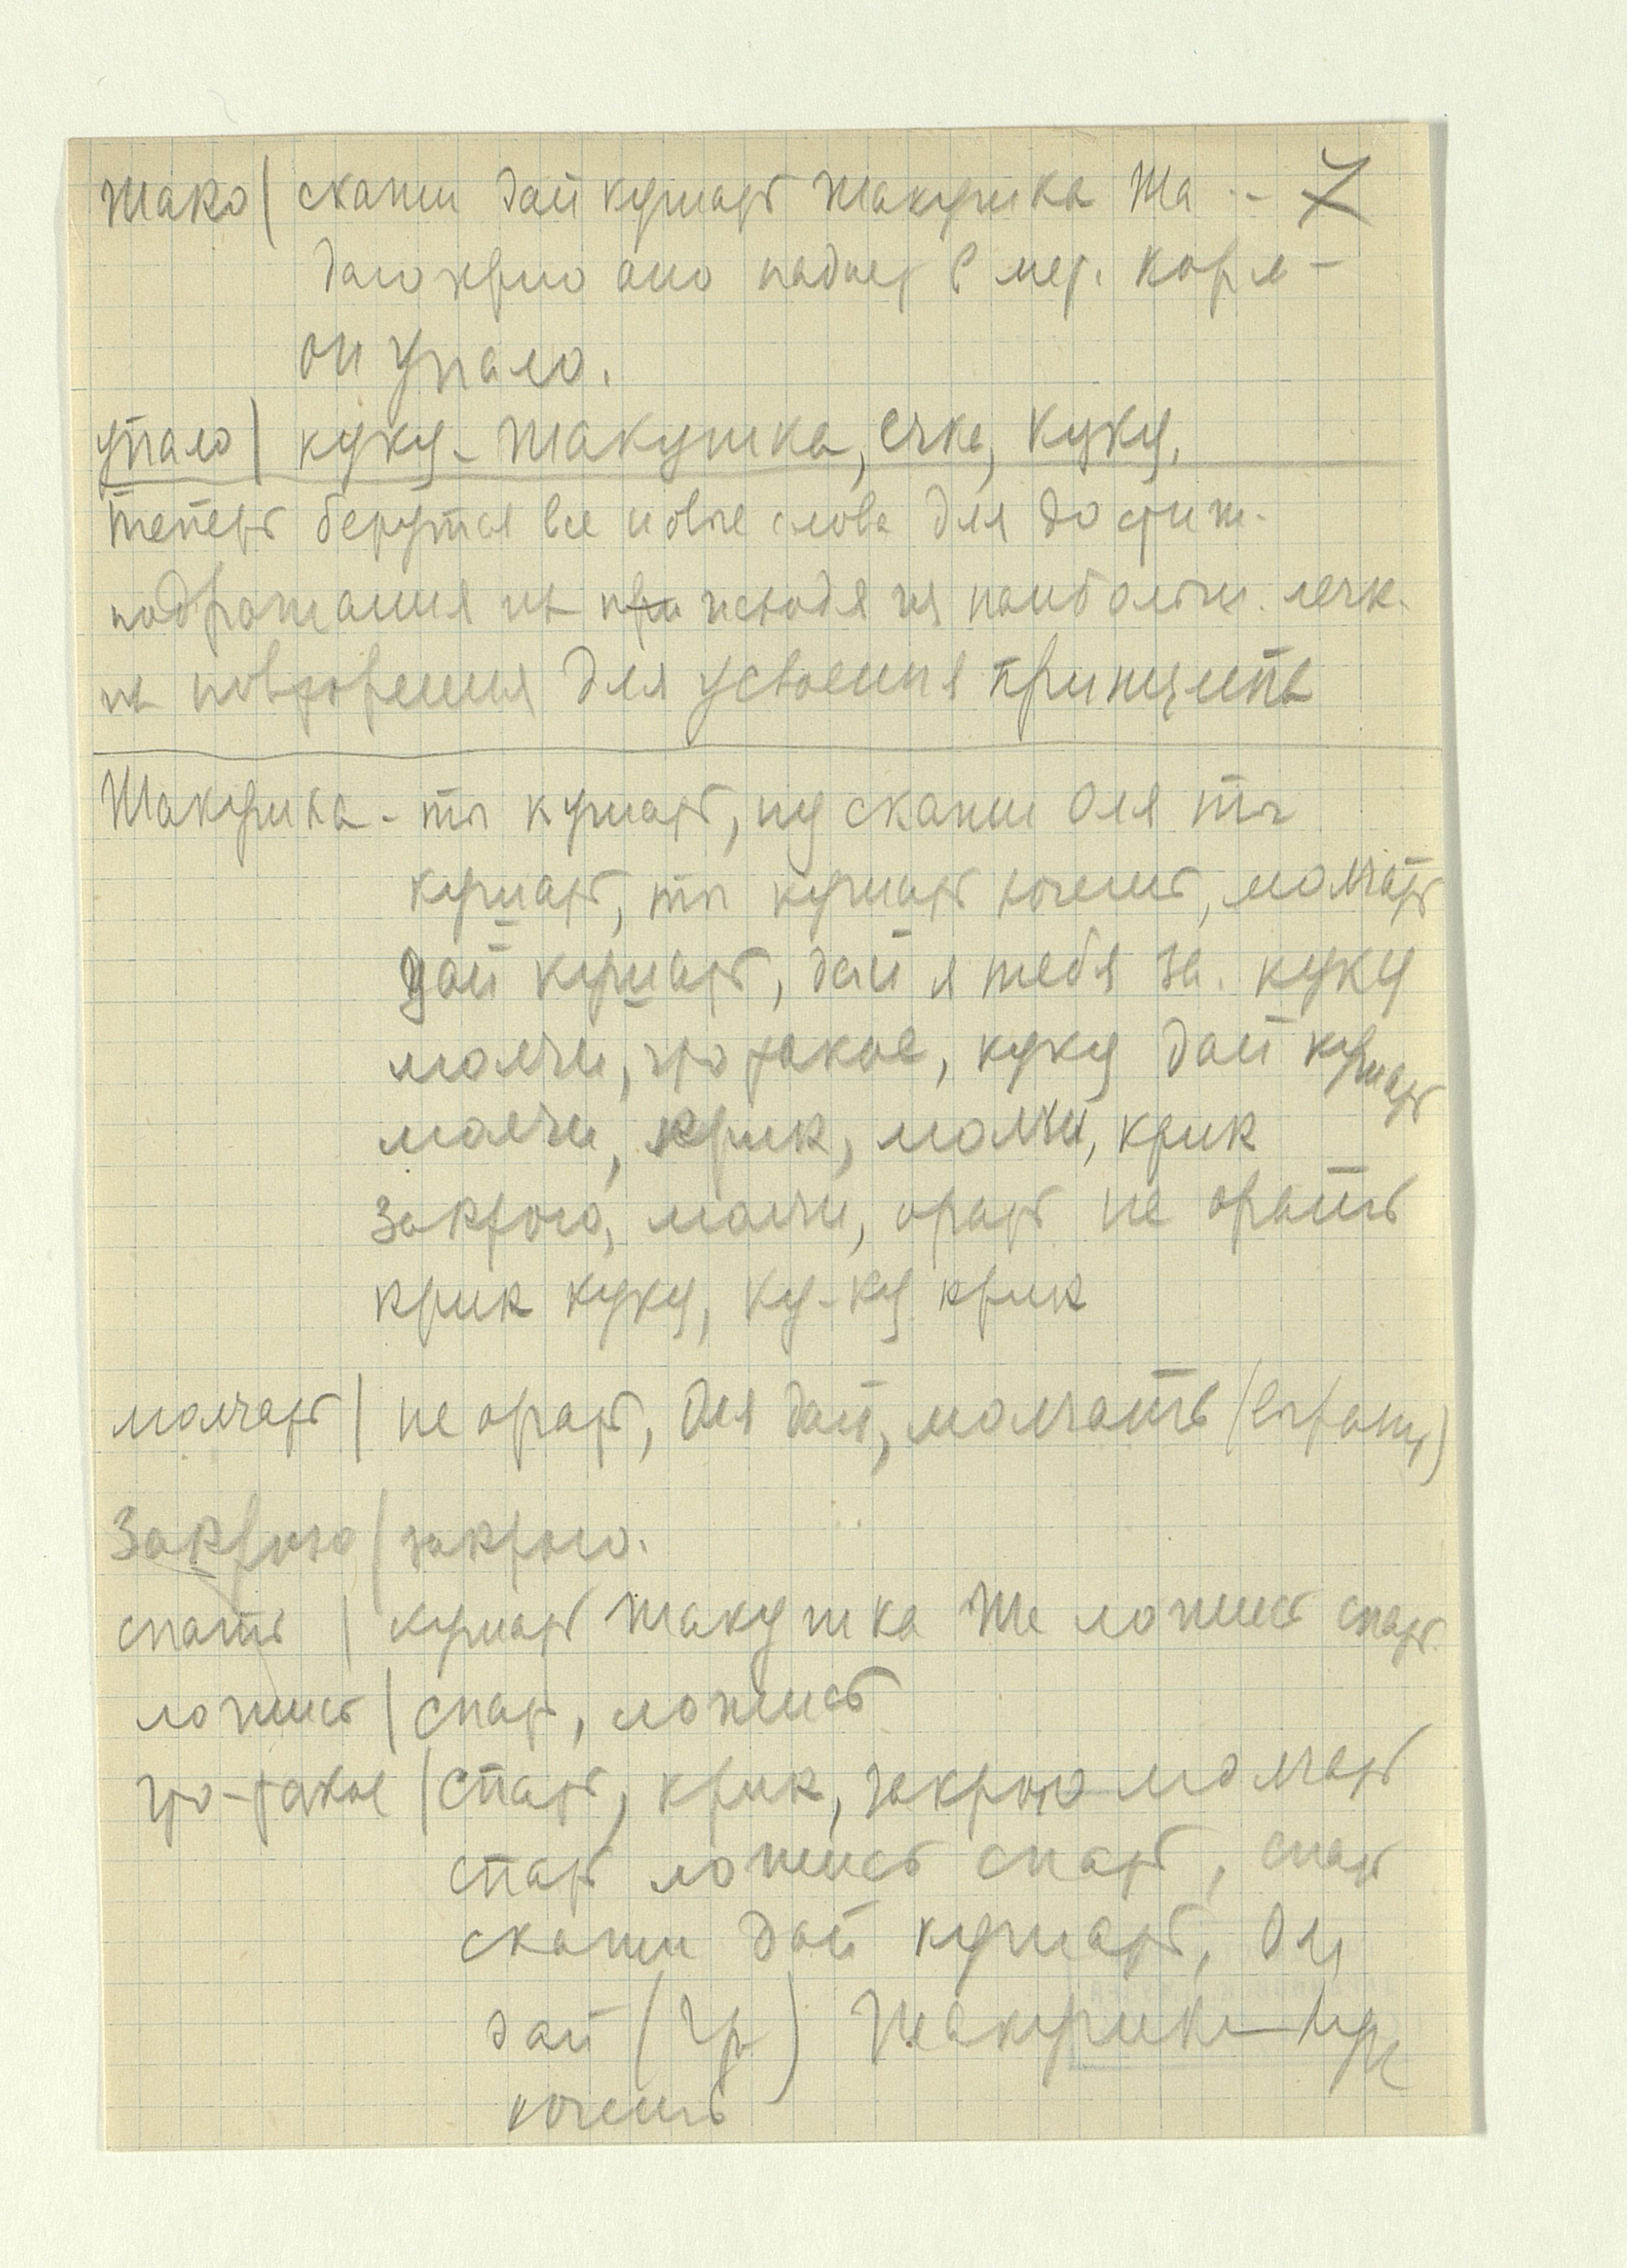 Жако | скажи дай кушать Жакушка Жа - 7
оно падает
он упало.
упало | куку - Жакушка, очке, куку.
теперь берутся все новые слова для достиж.
подражания исходя из наибольш. легк.
их повторения для усвоения принципа
Жакушка - ты кушать, ну скажи Оля ты
кушать, ты кушать хочешь, молчать
дай кушать, дай я тебя за. куку
молчи, что такое, куку дай кушать
молчи, крик, молчи, крик
закрою, молчи, орать не орать
крик куку, ку-ку крик
молчать | не орать, Оля дай, молчать
Закрою | закрою.
спать | кушать Жакушка Же ложись спать.
ложись | спать, ложись
что-такое | спать, крик, закрою молчать
спать ложись спать, спать
скажи дай кушать, Оля
дай Жакушка
хочешь